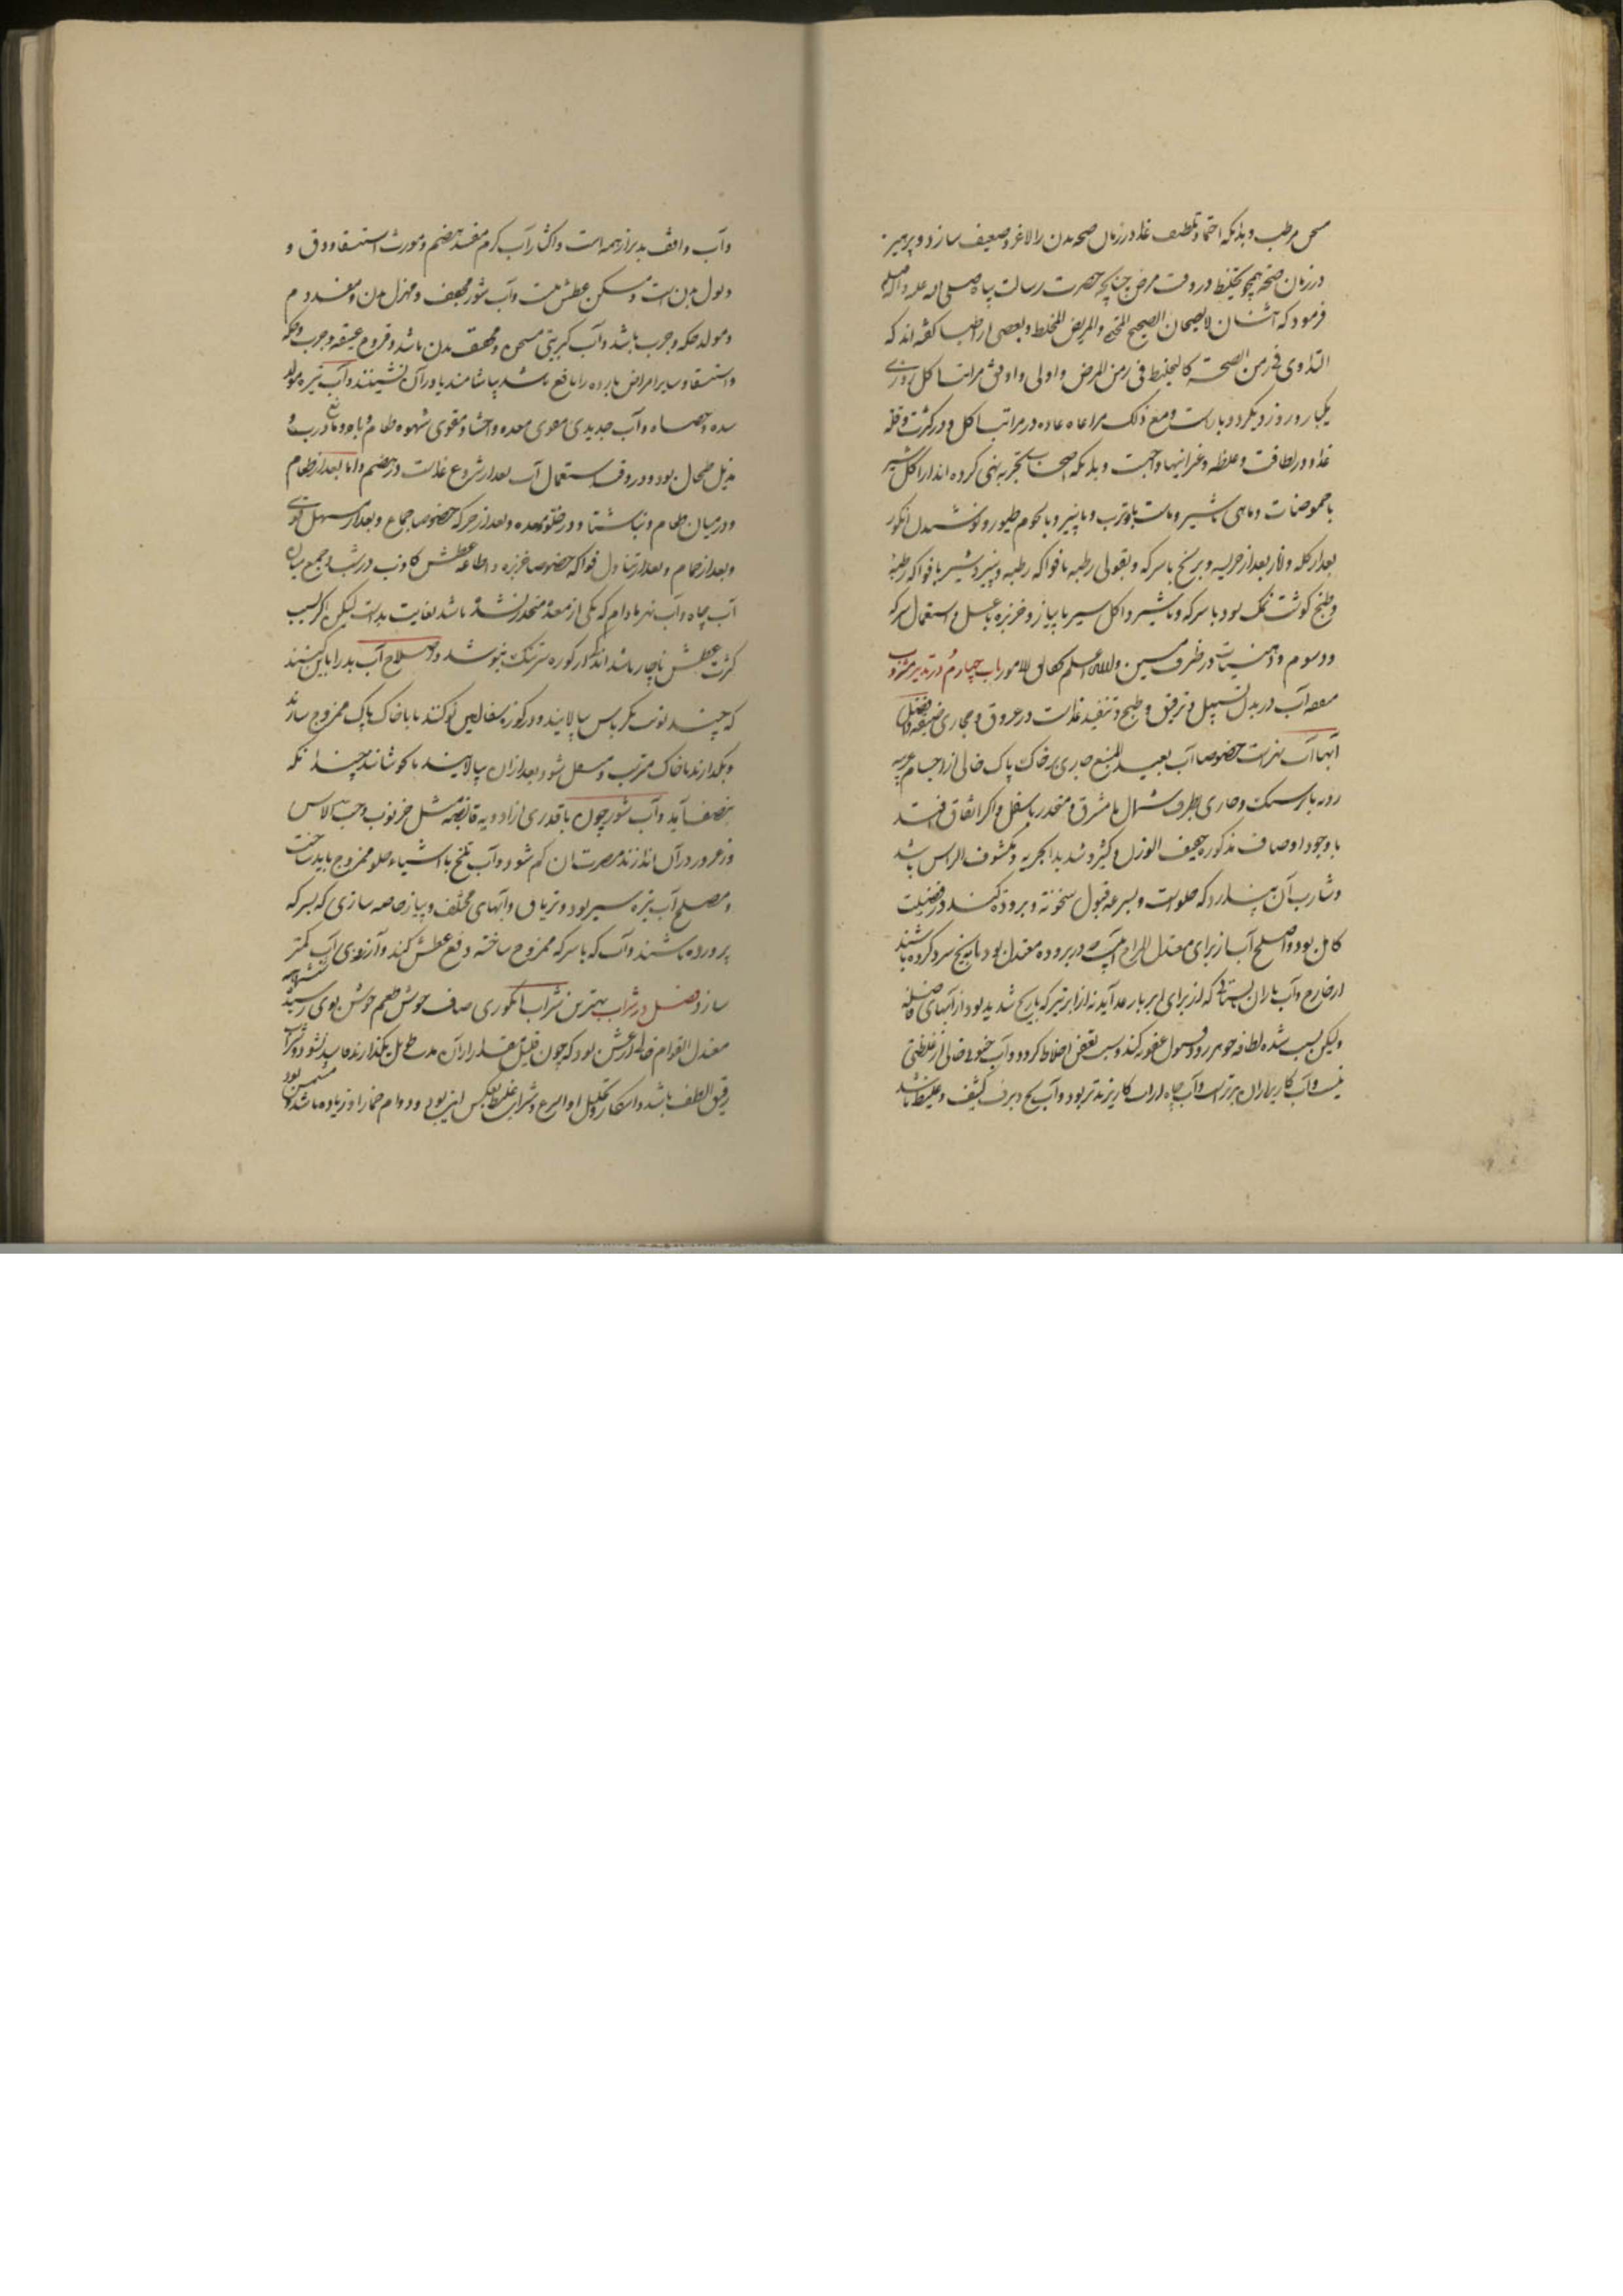 مرطب و بدانکه احتما و تلطیف غذا در زمان صحه بدن را لاغر و ضعیف سازد و پرهیز
در زمان صحه همچو تخلیط در وقت مرض چنانچه حضرت رسالت پناه صلی الله علیه و آله
فرمود که اثنان لا یصحان الصحیح المحتمی والمریض المخلط و بعضی از اطبا گفته اند که
التداوی فی زمن الصحة کالتخلیط فی زمن المرض و اولی و اوفق مراتب اکل روزی
یکبار و روز دیگر دو بار است و مع ذلک مراعاه عاده در مراتب اکل و در کثرت و قله
غذا و در لطافت و غلظه و غیر اینها واجبست و بدانکه اصحاب تجربه نهی کرده اند از اکل شیر
با حموضات و ماهی با شیر و ماست با ترب و با پنیر و با لحوم طیور و نوشیدن انگور
بعد از کله و انار بعد از هریسه و برنج با سرکه و بقولی رطبه با فواکه رطبه و پنیر و شیر با فواکه رطبه
و طبخ گوشت نمک سود با سرکه و با شیر و اکل سیر با پیاز و خربزه با عسل و استعمال سرکه
و دسوم و دهنیات در ظرف مسین والله اعلم بحقایق الامور باب چهارم در تدبیر مشروب
منفعه آب در بدن تسییل و ترقیق و طبخ و تنفیذ غذاست در عروق و مجاری ضیقه و افضل
آبها آب نهرست خصوصا آب بعید المنبع جاری بر خاک پاک خالی از اجسام
رود با سنگ و جاری بطرف شمال یا مشرق و منحدر باسفل و اگر اتفاق افتد
با وجود اوصاف مذکوره خفیف الوزن و کثیر و شدید الجریه و مکشوف الراس باشد
و شارب آن پندارد که حلوست و بسرعه قبول سخونه و بروده کند در فضیلت
کامل بود و اصلح آب از برای معتدل المزاج آبیست که در بروده معتدل بود یا به یخ سرد کرده باشند
از خارج و آب باران تابستانی که از برای ابر بارعد آید نه از ابر تیز که با ریح شدید بود از آبهای فاضله
ولیکن بسبب شده لطافه جوهر زود قبول عفونه کند و سبب تعفن اخلاط گردد و آب خالی از غلظتی
نیست و آب کاریز از آن بدترست و آب چاه از آب کاریز بدتر بود و آب یخ و برف کثیف و غلیظ باشد
و آب واقف بدتر از همه است و اکثار آب گرم مفسد هضم و مورث استسقا و دق و
ذبول بدن است و مسکن عطش نیست و آب شور مجفف و مهزل بدن و مفسد دم
و مولد حکه و جرب باشد و آب کبریتی مسخن و مجفف بدن باشد و قروح عتیقه و جرب و حکه
و استسقا و سایر امراض بارده را نافع باشد بیاشامند یا در آن نشینند و آب تیره مولد
سده و حصاه و آب حدیدی مقوی معده و احشا و مقوی شهوه طعام و باه و مانع درب و
مذبل طحال بود و در وقت استعمال آب بعد از شروع غذاست در هضم و اما بعد از طعام
و در میان طعام و ناشتا و در خلو معده و بعد از حرکه خصوصا جماع و بعد از مسهل قوی
و بعد از حمام و بعد از تناول فواکه خصوصا خربزه و اطاعه عطش کاذب در شب و جمع میان
آب چاه و آب نهر مادام که یکی از معده منحدر نشده باشد بغایت بدست لیکن اگر بسبب
کثرت عطش ناچار باشد اندک از کوزه سرتنگ بنوشد و اصلاح آب بد را باین کنند
که چند نوبت بکرباس بپالایند و در کوزه سفالین نو کنند یا با خاک پاک ممزوج سازند
و بگذارند تا خاک مترتب و مستفل شود بعد از آن بپالایند یا بجوشانند چندانکه
بنصف آید و آب شور چون با قدری از ادویه قابضه مثل خرنوب و حب الاس
و زعرور در آن اندازند مضرت آن کم شود و آب تلخ با اشیاء حلو ممزوج باید ساخت
و مصلح آب تیره سیر بود و تریاق و آبهای مختلف و پیاز خاصه سازی که بسرکه
پرورده باشند و آب که با سرکه ممزوج ساخته دفع عطش کند و آرزوی آب کمتر
سازد فصل در شراب بهترین شراب انگوری صاف خوش طعم خوش بوی رسیده
معتدل القوام خالی از غش بود که چون قلیل مقدار از آن مدت طویل بگذارند فاسد نشود و شراب
رقیق الطف باشد و اسکار و تحلیل او اسرع و شراب غلیظ بعکس این بود و دوام خمار او زیاده باشد و